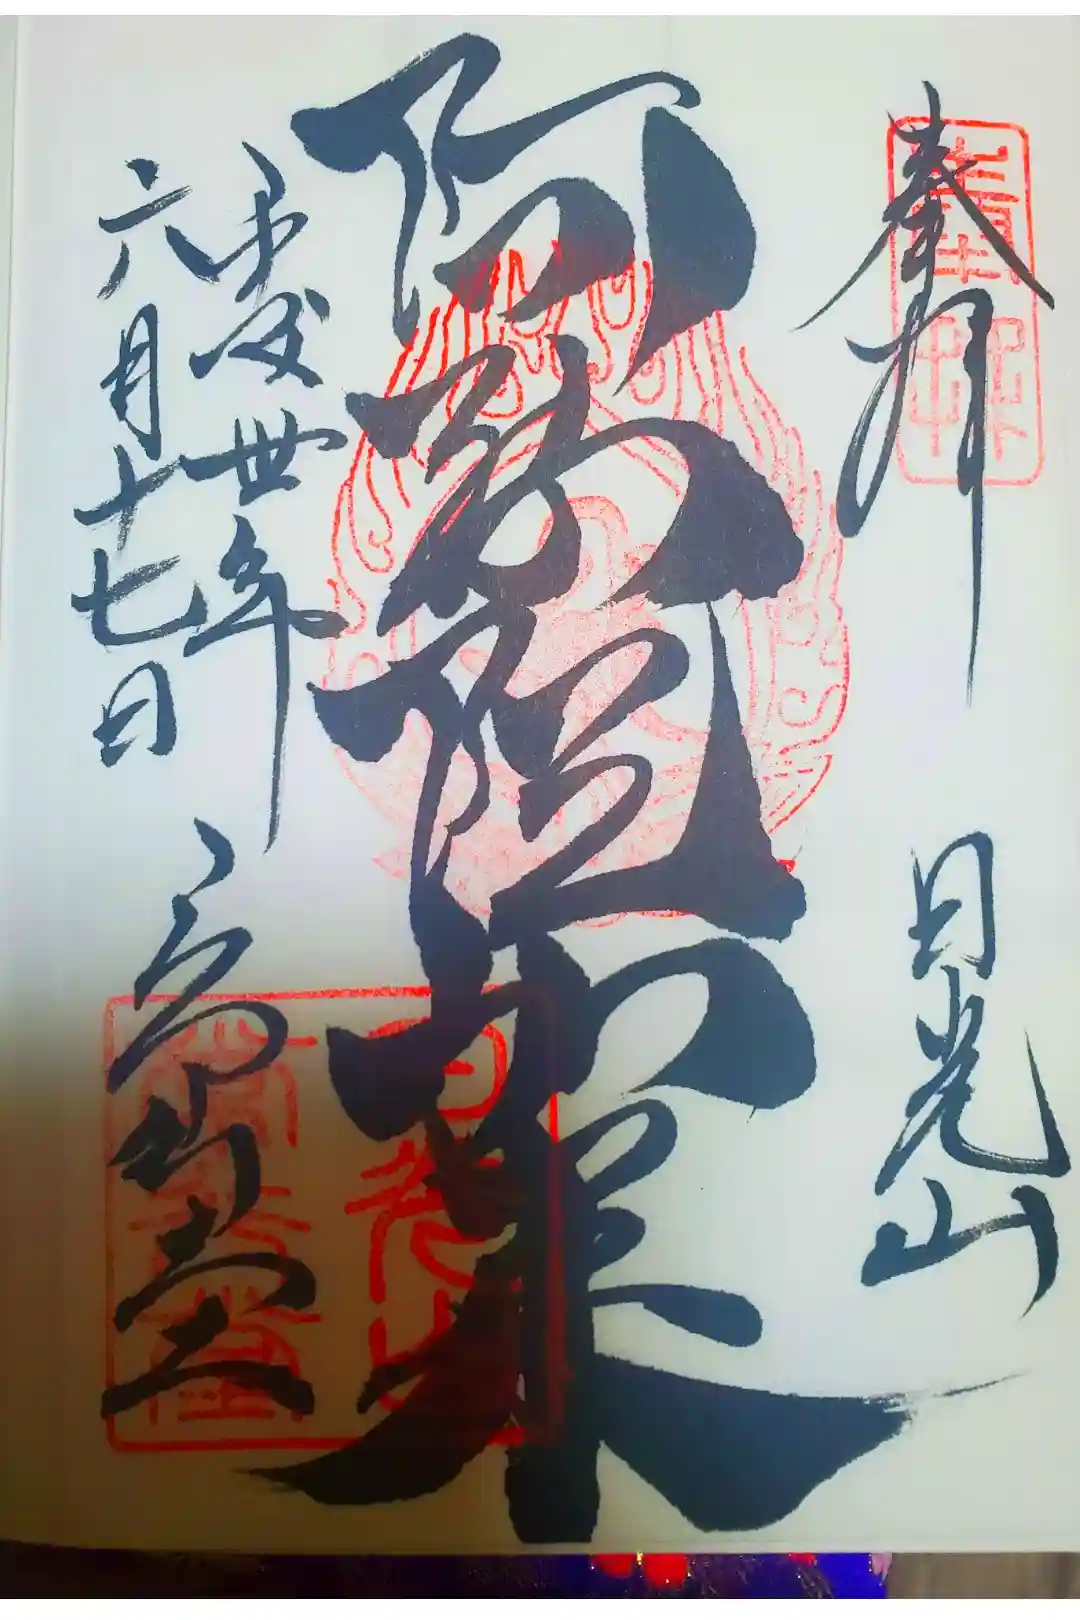 奉拝
日光山
阿弥陀如来
平成丗年
六月十七日
常行堂
日光山
常行堂